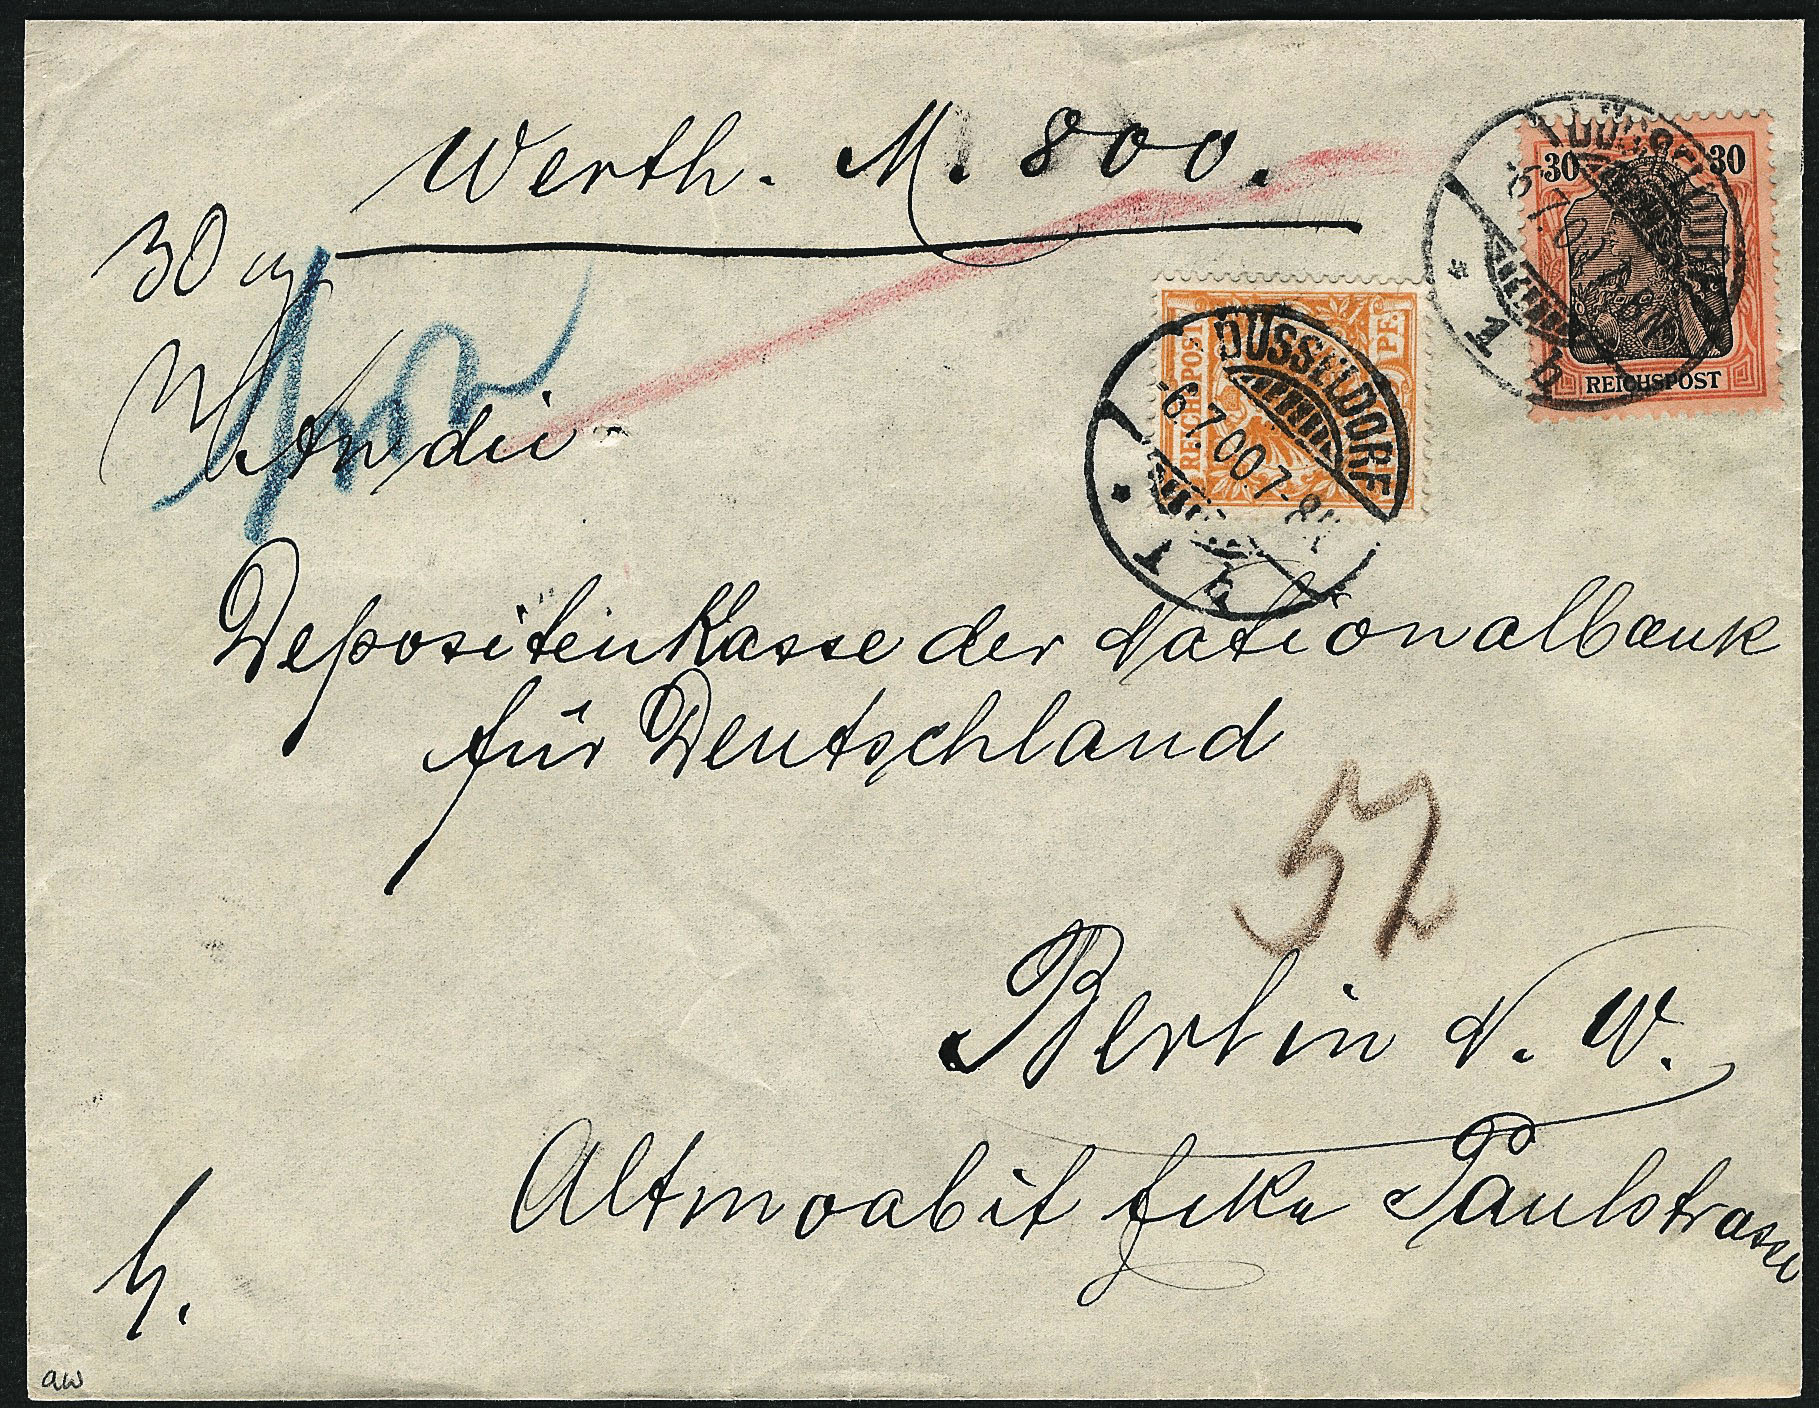 Werth. M. 800.
30 g
30 30
DÜSSELDORF
REICHSPOST
1 b
REICHSPOST PF
DÜSSELDORF
-6.7.00.7-8N.
1 b
An die
Depositenkasse der Nationalbank
für Deutschland
52
Berlin N. W.
Altmoabit Ecke Paulstrasse
aw